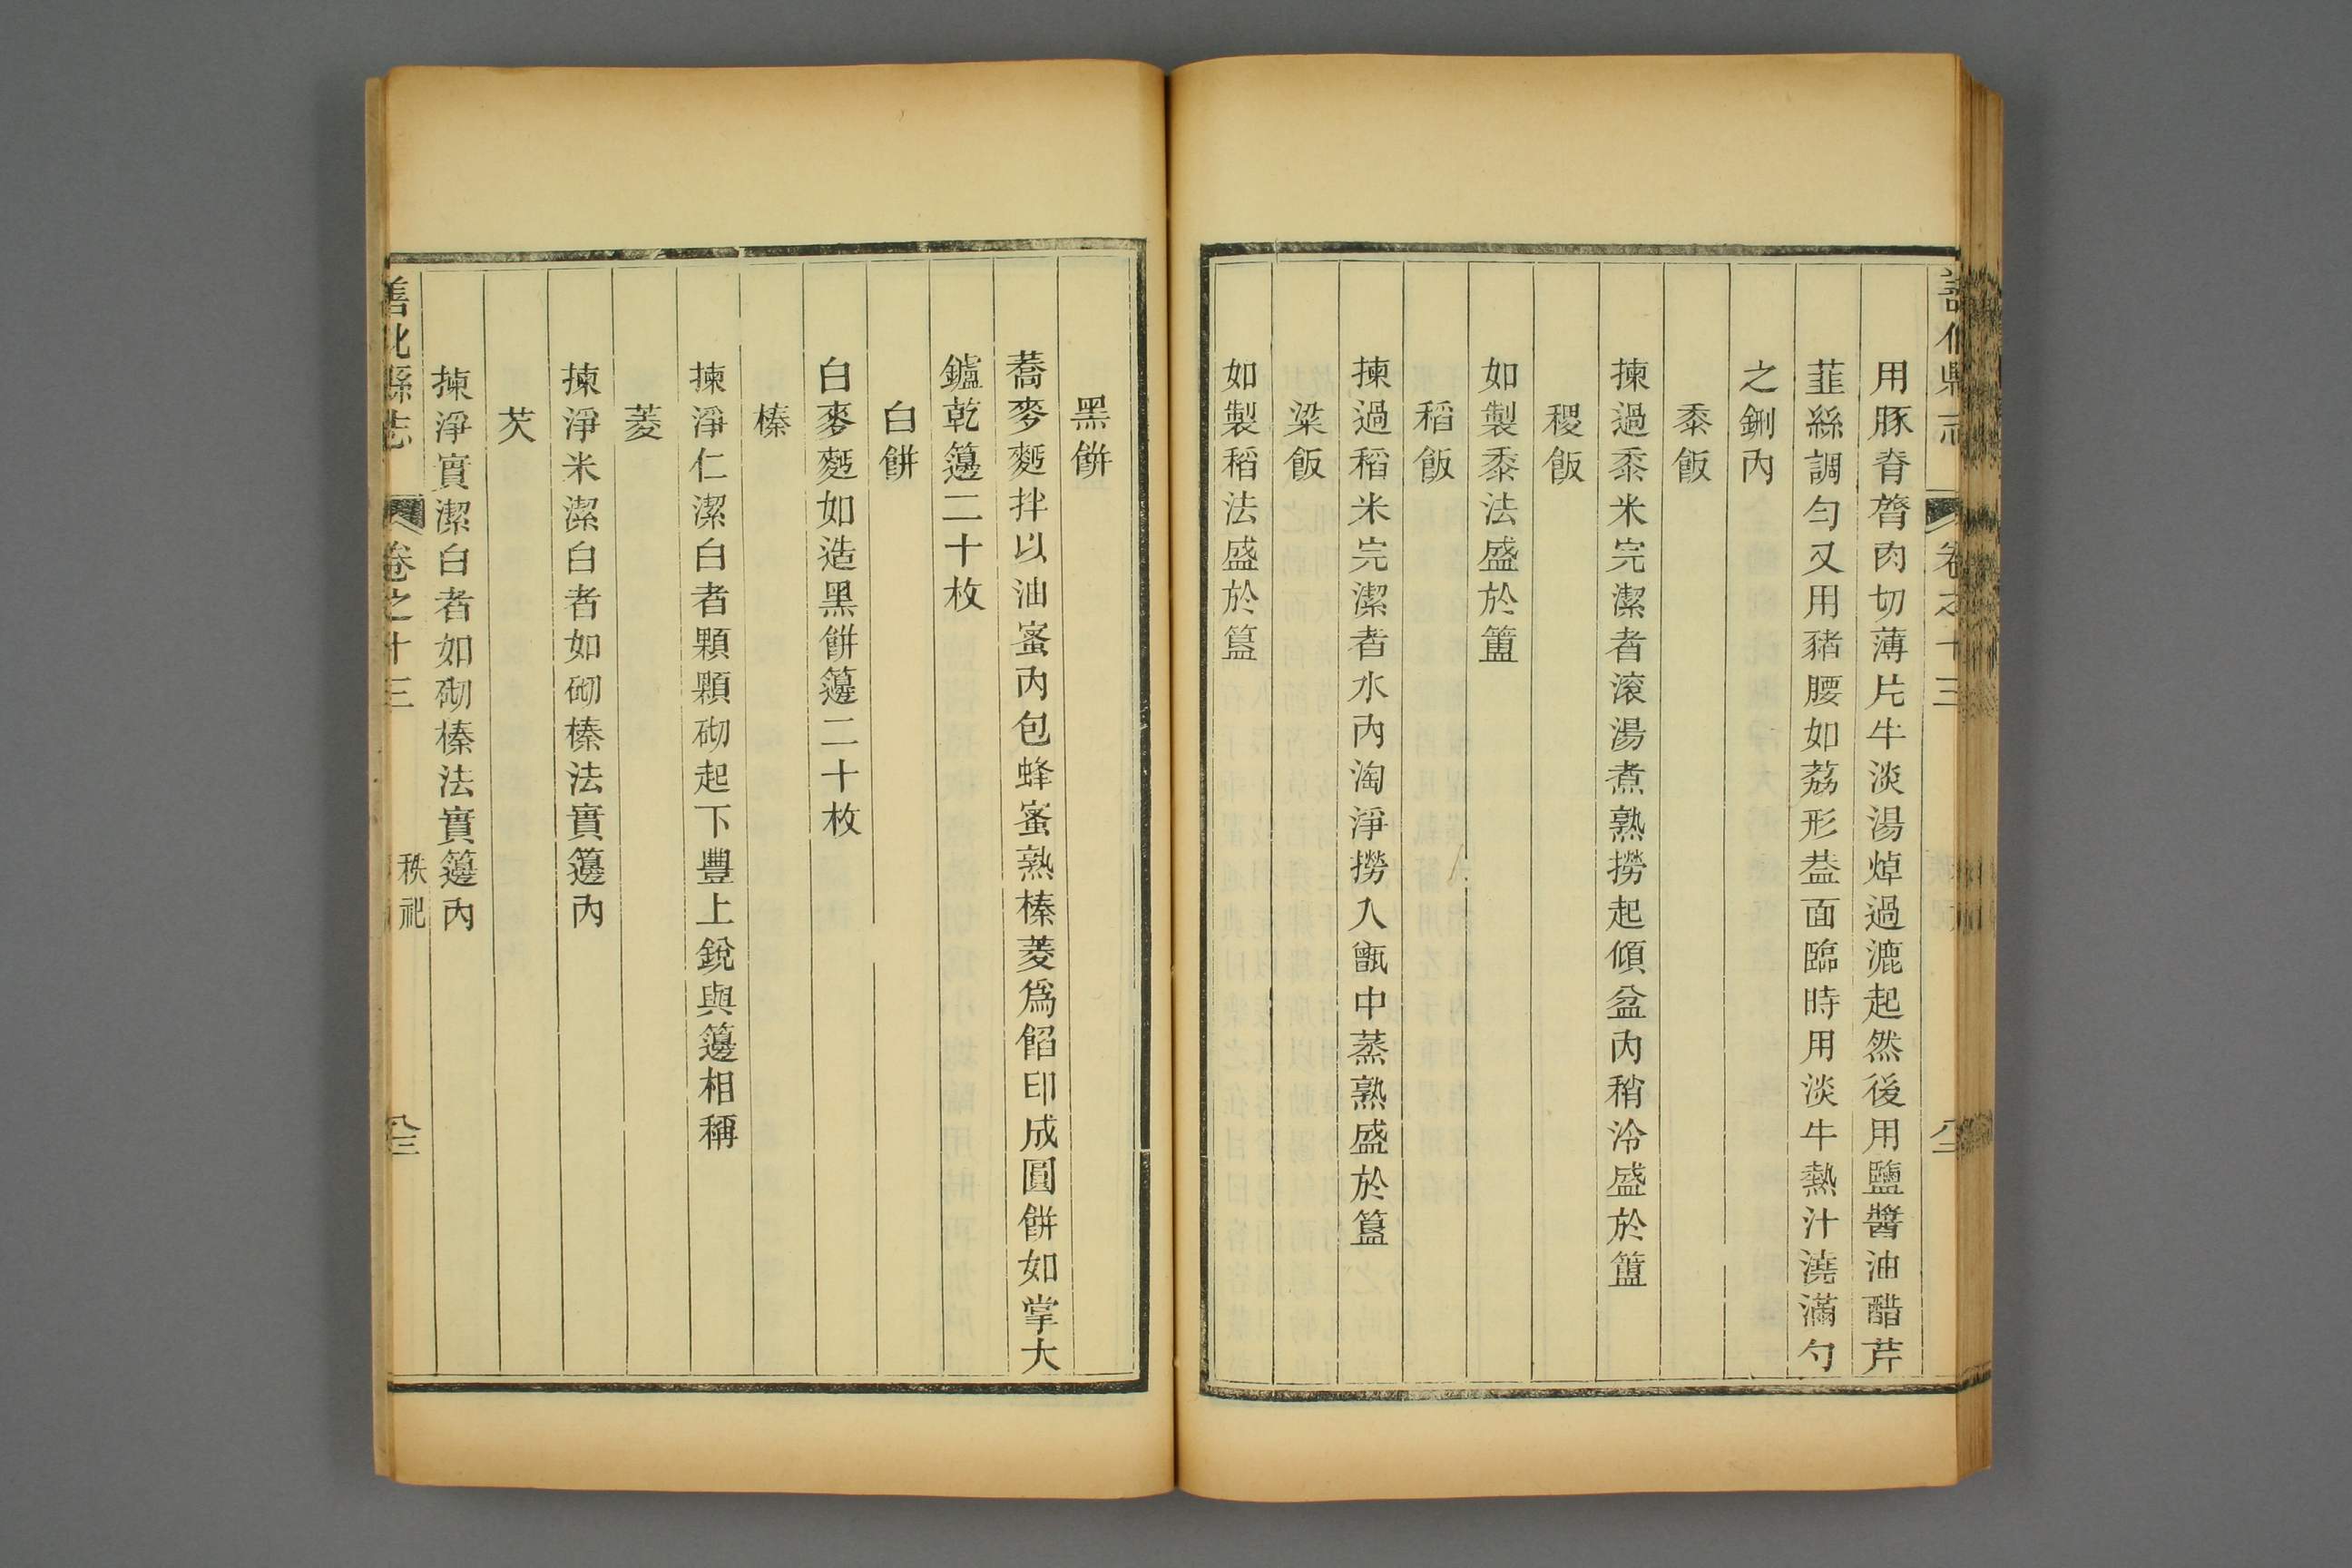 用豚脊膂肉切薄片牛淡湯焯過漉起然後用鹽醬油醋芹
韮絲調勻又用豬腰如荔形葢面臨時用淡牛熱汁澆滿勺
之鉶內
黍飯
揀過黍米完潔者滾湯煮熟撈起傾盆內稍冷盛於簠
稷飯
如製黍法盛於簠
稻飯
揀過稻米完潔者水內淘淨撈入甑中蒸熟盛於簋
粱飯
如製稻法盛於簋
黑餅
蕎麥麪拌以油蜜內包蜂蜜熟榛菱爲餡印成圓餅如掌大
鑪乾籩二十枚
白餅
白麥麪如造黑餅籩二十枚
榛
揀淨仁潔白者顆顆砌起下豐上銳與籩相稱
菱
揀淨米潔白者如砌榛法實籩內
芡
揀淨實潔白者如砌榛法實籩內
善化縣志 卷之十三 秩祀 八三